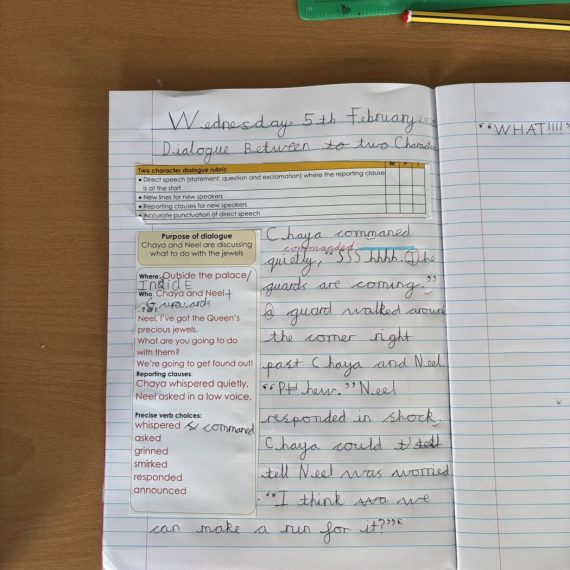 Wednesday 5th February 202
Dialogue Between to two Characters
Two character dialogue rubric M P T
• Direct speech (statement, question and exclamation) where the reporting clause
is at the start
• New lines for new speakers
• Reporting clauses for new speakers
• Accurate punctuation of direct speech
Purpose of dialogue
Chaya and Neel are discussing
what to do with the jewels
Where: Outside the palace/
InsidE
Who: Chaya and Neel +
Guards
. ? or !:
Neel, I've got the Queen's
precious jewels.
What are you going to do
with them?
We're going to get found out!
Reporting clauses:
Chaya whispered quietly,
Neel asked in a low voice,
Precise verb choices:
whispered commaned
asked
grinned
smirked
responded
announced
Chaya commaned
commanded
quietly, "SSS hhhh. The
guards are coming."
a guard walked aroun
the corner right
past Chaya and Neel.
"PHhew." Neel
responded in shock.
Chaya could t tell
tell Neel was worried
. "I think wa we
can make a run for it?"
"WHAT!!!!"